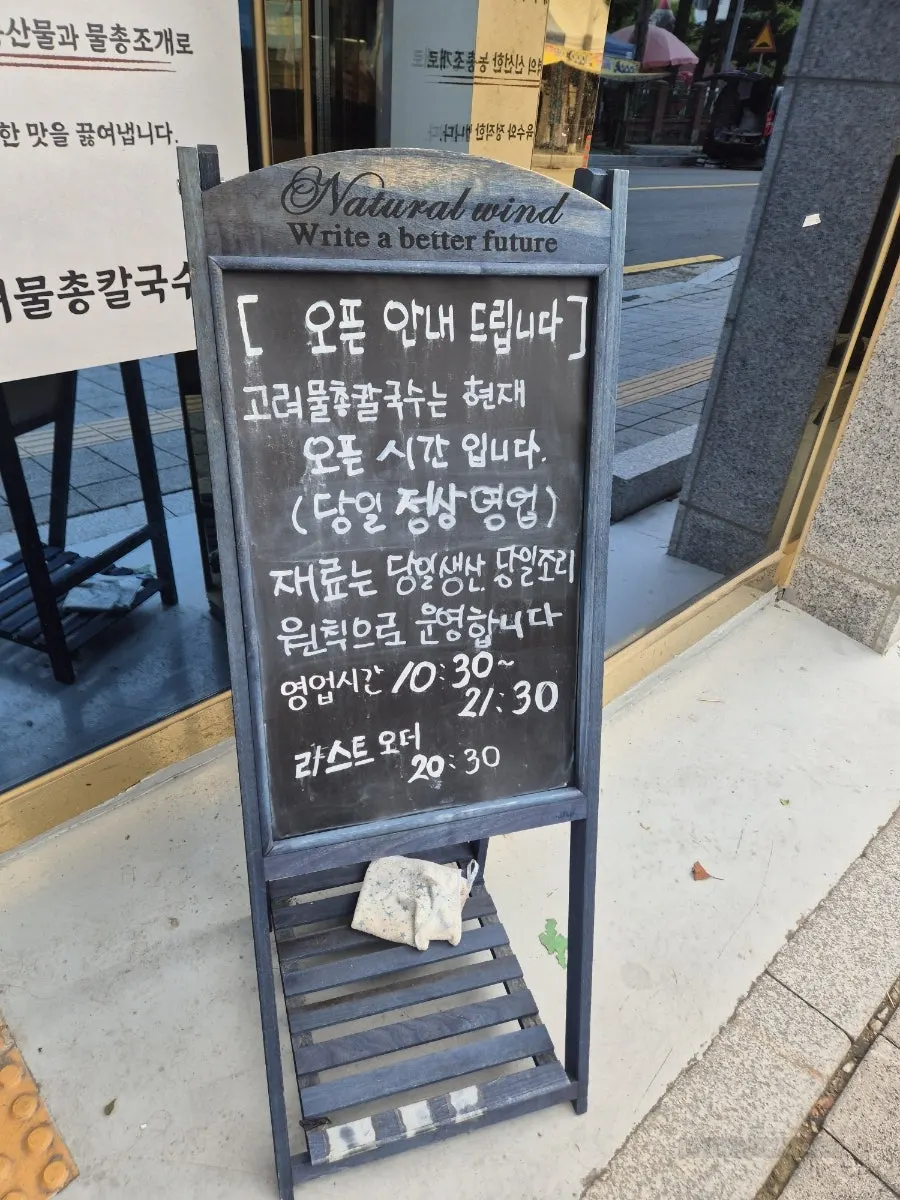 산물과 물총조개로
한 맛을 끓여냅니다.
물총칼국수
Natural wind
Write a better future
[ 오픈 안내 드립니다 ]
고려물총칼국수는 현재
오픈 시간 입니다.
(당일 정상 영업)
재료는 당일생산. 당일조리
원칙으로 운영합니다
영업시간 10:30~
21:30
라스트 오더
20:30